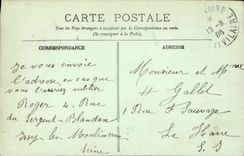 CARTE POSTALE
Tous les Pays étrangers n'acceptent pas la Correspondance au recto.
(Se renseigner à la Poste).
CORRESPONDANCE
ADRESSE
Je vous envoie
l'adresse en cas que
vous l'auriez oublier
Roger 4 Rue
du Sergent-Blandan
Issy les Moulineaux
Seine
Monsieur et Mme
H Gallet
1 Rue St Sauvage
Le Havre
S I